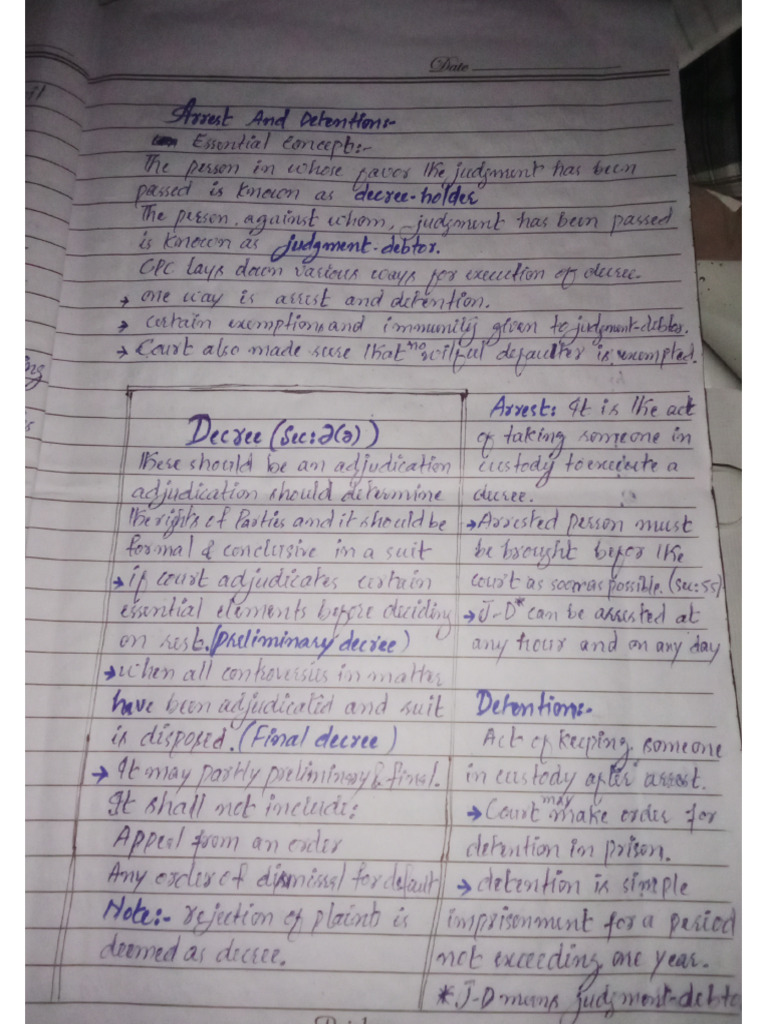 Date
Arrest And Detention:-
Essential Concept:-
The person in whose favor the judgment has been
passed is known as decree-holder
The person, against whom, judgment has been passed
is known as judgment-debtor.
CPC lays down various ways for execution of decree.
→ one way is arrest and detention.
→ certain exemptions and immunity given to judgment-debtor.
→ Court also made sure that no wilful defaulter is exempted.
Decree (Sec:2(2))
there should be an adjudication
adjudication should determine
the rights of Parties and it should be
formal & conclusive in a suit
→ if court adjudicates certain
essential elements before deciding
on rest. (Preliminary decree)
→ when all controversies in matter
have been adjudicated and suit
is disposed. (Final decree)
→ It may partly preliminary & final.
It shall not include:
Appeal from an order
Any order of dismissal for default
Note:- rejection of plaint is
deemed as decree.
Arrest: It is the act
of taking someone in
custody to execute a
decree.
→ Arrested person must
be brought befor the
court as soon as possible. (Sec:55)
→ J-D* can be arrested at
any hour and on any day
Detention:-
Act of keeping someone
in custody after arrest.
→ Court may make order for
detention in prison.
→ detention is simple
imprisonment for a period
not exceeding one year.
*J-D means judgment-debto